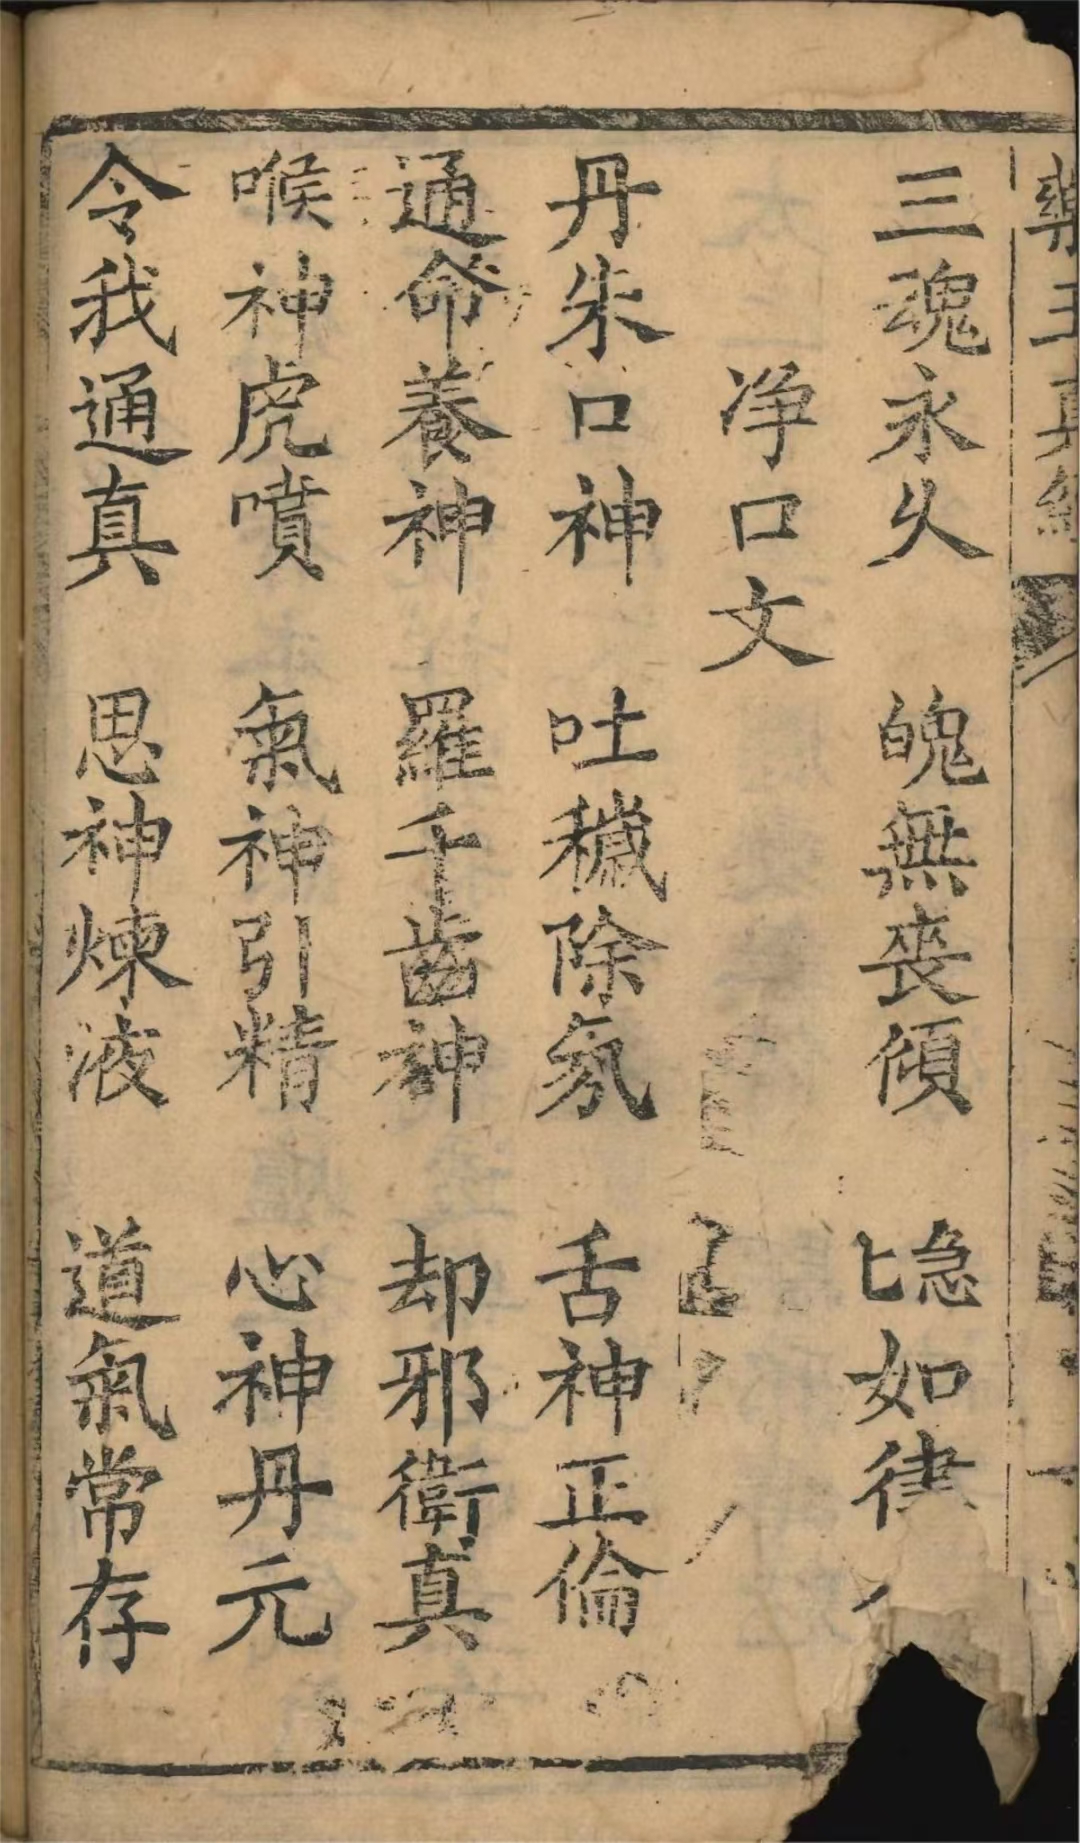 藥王真經
三魂永久 魄無喪傾 急匕如律
净口文
丹朱口神 吐穢除氛 舌神正倫
通命養神 羅千齒神 却邪衛真
喉神虎噴 氣神引精 心神丹元
令我通真 思神煉液 道氣常存